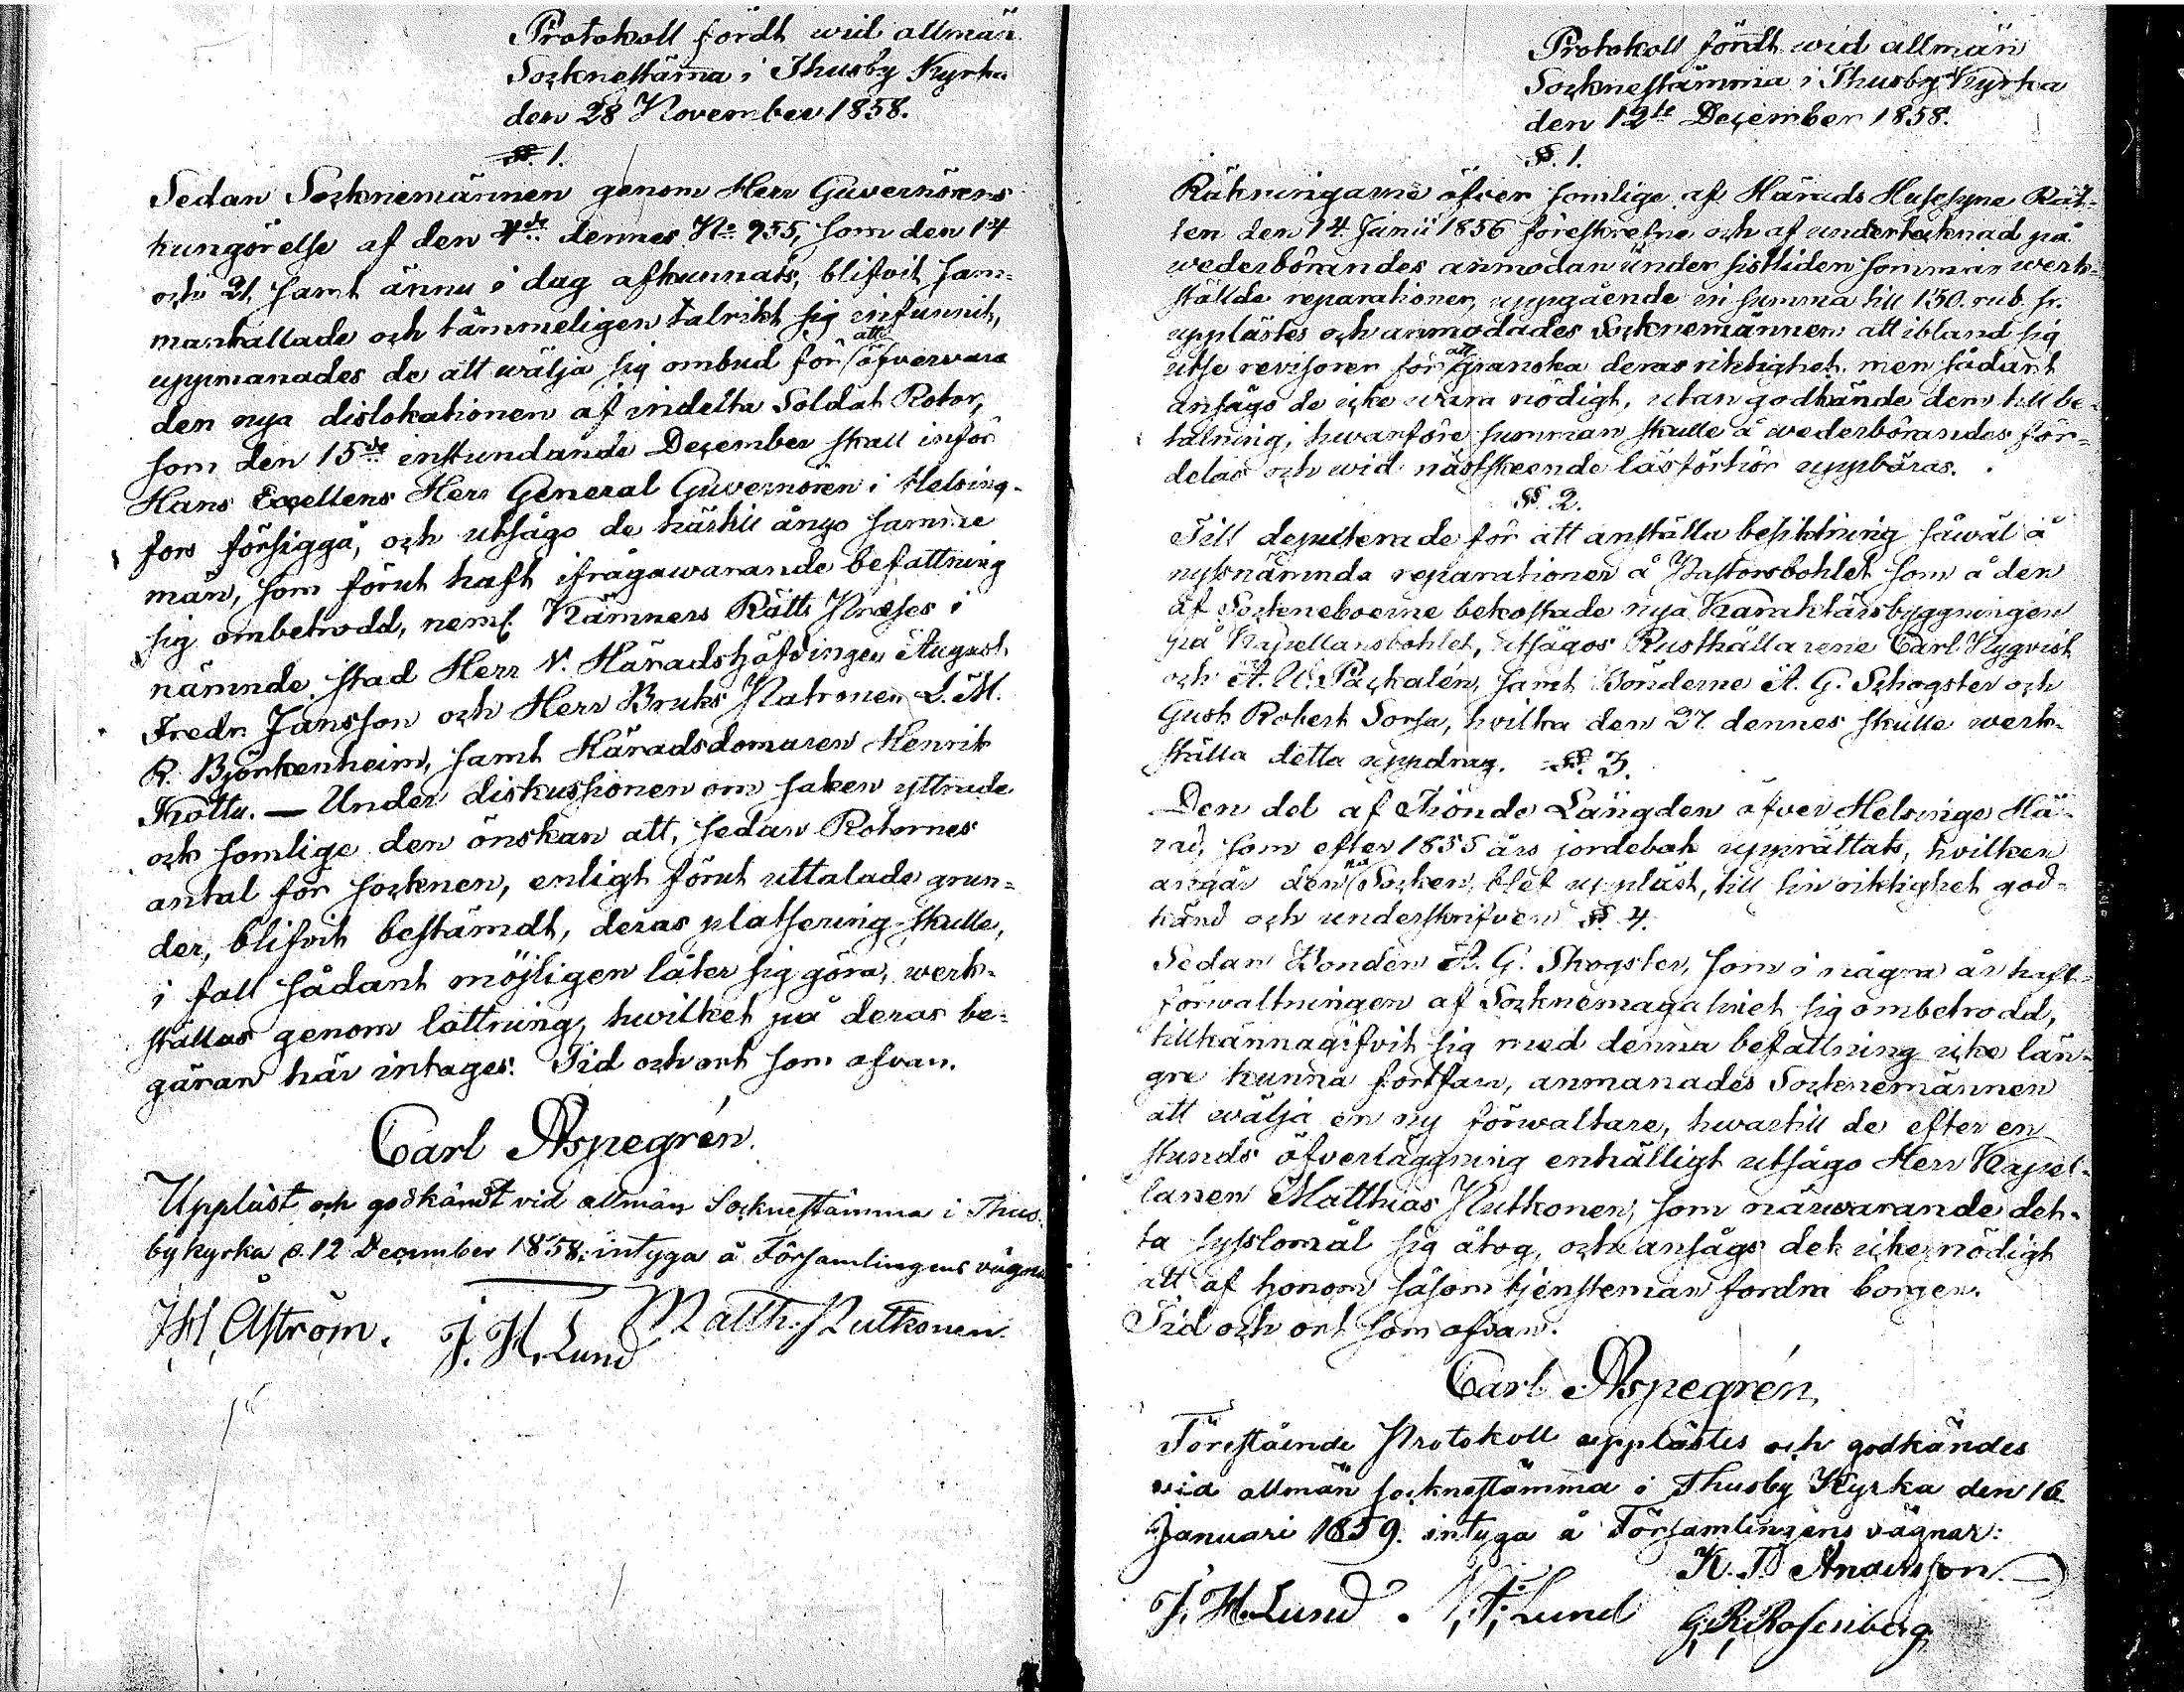 Protokoll fördt wid allmän
Socknestäma i Thusby Kyrka
den 28 November 1858.
§. 1.
Sedan Socknemännen genom Herr Guvernörens
kungörelse af den 4de dennes No 955, som den 14
och 21, samt ännu i dag afkunnats, blifvit sam-
mankallade och tämmeligen talrikt sig infunnit,
uppmanades de att wälja sig ombud för att öfvervara
den nya dislokationen af indelta Soldat Rotor,
som den 15de instundande December skall inför
Hans Excellens Herr General Guvernören i Helsing-
fors försiggå, och utsågo de härtill ångo samme
män, som förut haft ifrågawarande befattning
sig ombetrodd, neml. Kämners Rätts Præses i
nämnde stad Herr V. Häradshöfdingen August
Fredr. Jansson och Herr Bruks Patronen L. M.
R. Björkenheim, samt Häradsdomaren Henrik
Kottu. — Under diskussionen om saken yttrade
ock somlige den önskan att, sedan Rotornes
antal för socknen, enligt förut uttalade grun-
der, blifvit bestämdt, deras platsering skulle,
i fall sådant möjligen låter sig göra, werk-
ställas genom lottning, hwilket på deras be-
gäran här intages. Tid och ort som ofvan.
Carl Aspegrén.
Uppläst och godkändt vid allmän Socknestämma i Thus-
by kyrka d. 12 December 1858. intyga å Församlingens vägnar
J H Åström. J. H. Lund Matth. Putkonen.
Protokoll fördt wid allmän
Socknestämma i Thusby Kyrka
den 12te December 1858.
§. 1.
Räkningarne öfver somlige af Härads Husesyns Rät-
ten den 14 Junii 1856 föreskrefne och af undertecknad på
wederbörandes anmodan under sistliden sommar werk-
ställde reparationer, uppgående in summa till 150. rub. sr.
upplästes och anmodades Socknemännen att ibland sig
utse revisorer för att granska deras riktighet, men sådant
ansågo de icke wara nödigt, utan godkände dem till be-
talning, hwarföre summan skulle å wederbörandes för-
delas och wid nästskeende läsförhör uppbäras.
§. 2.
Till deputerade för att anställa besiktning såwäl å
nyssnämnda reparationer å Pastorsbohlet som å den
af Sockneboerne bekostade nya Karaktärsbyggningen
på Kapellansbohlet, utsågos Rusthållarene Carl Nygvist
och A. W. Päckalén, samt Bönderne A. G. Schogster och
Gust Robert Sorsa, hvilka den 27 dennes skulle werk-
ställa detta uppdrag. §. 3.
Den del af Tiönde Längden öfver Helsinge Hä-
rad, som efter 1855 års jordebok upprättats, hvilken
angår denna Socken, blef uppläst, till sin riktighet god-
känd och underskrifven §. 4.
Sedan Bonden A. G. Skogster, som i några år haft
förwaltningen af Socknemagasinet sig ombetrodd,
tillkännagifvit sig med denna befattning icke län-
gre kunna fortfara, anmanades Socknemännen
att wälja en ny förwaltare, hwartill de efter en
stunds öfverläggning enhälligt utsågo Herr Kapel-
lanen Matthias Putkonen, som närwarande det-
ta sysslomål sig åtog, och ansågs det icke nödigt
att af honom såsom tjensteman fordra borgen.
Tid och ort som ofvan.
Carl Aspegrén,
Förestående Protokoll upplästes och godkändes
vid allmän socknestämma i Thusby Kyrka den 16
Januari 1859. intyga å Församlingens vägnar:
K. D Andersson
J. H. Lund. Lund G. R. Rosenberg